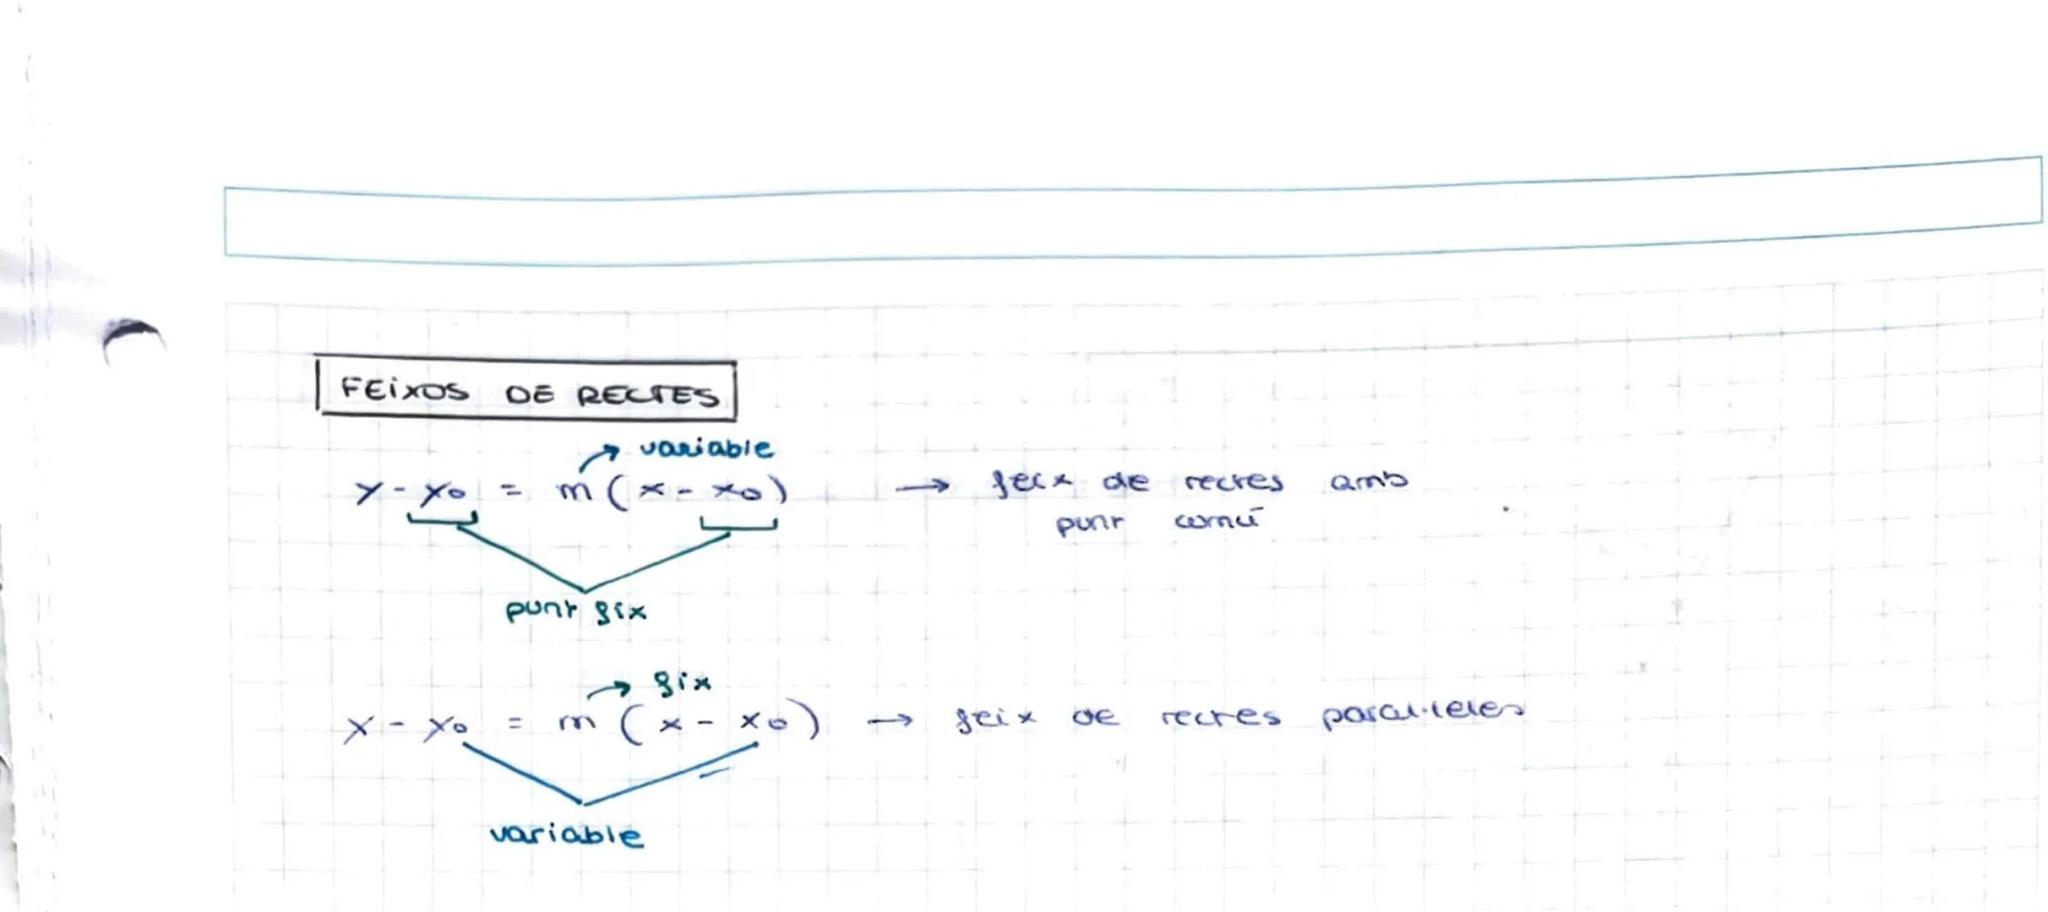 FEIXOS DE RECTES
variable
y - y₀ = m ( x - x₀ ) → feix de rectes amb
punt comú
punt fix
fix
y - y₀ = m ( x - x₀ ) → feix de rectes paral·leles
variable